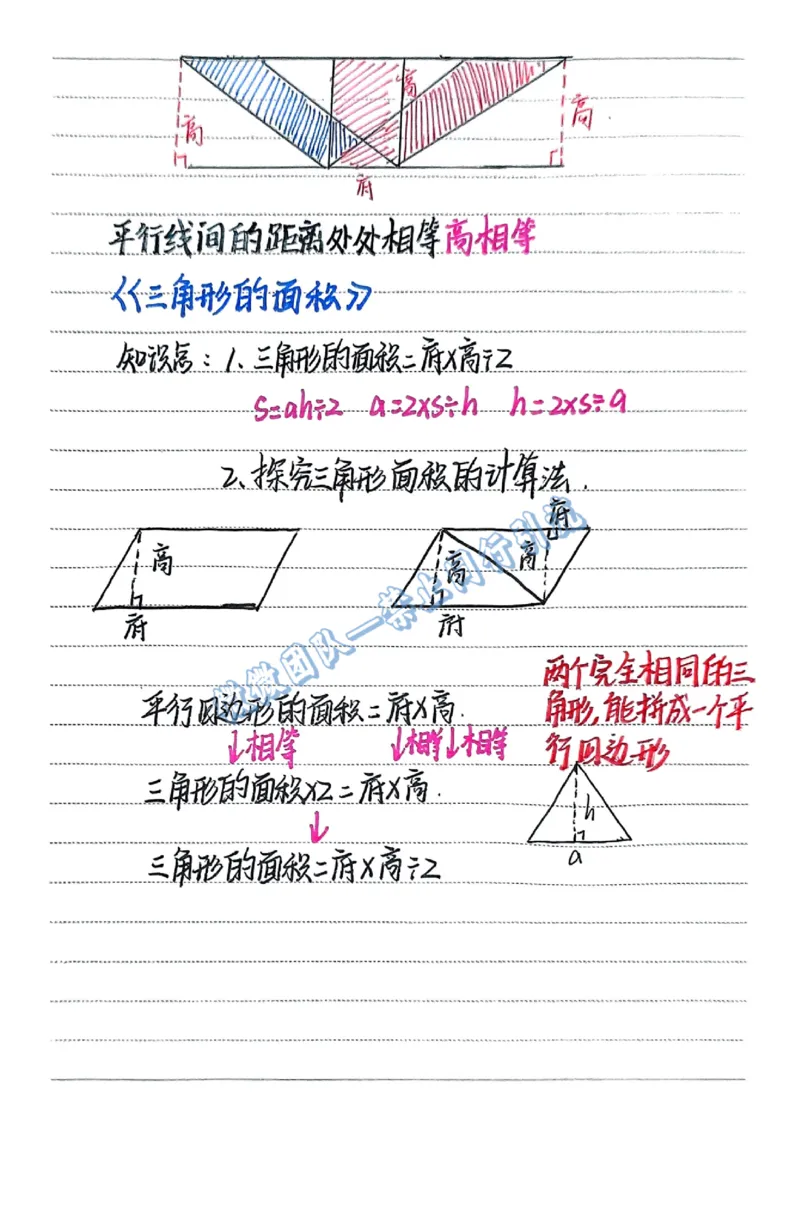 高
高
高
底
平行线间的距离处处相等高相等
《三角形的面积》
知识点：1、三角形的面积=底×高÷2
S=ah÷2 a=2×s÷h h=2×s÷a
2、探究三角形面积的计算法.
底
高
高
高
底
底
微微团队一禁止同行引流
两个完全相同的三
角形,能拼成一个平
行四边形
平行四边形的面积=底×高.
↓相等 ↓相等↓相等
三角形的面积×2=底×高.
↓
h
a
三角形的面积=底×高÷2